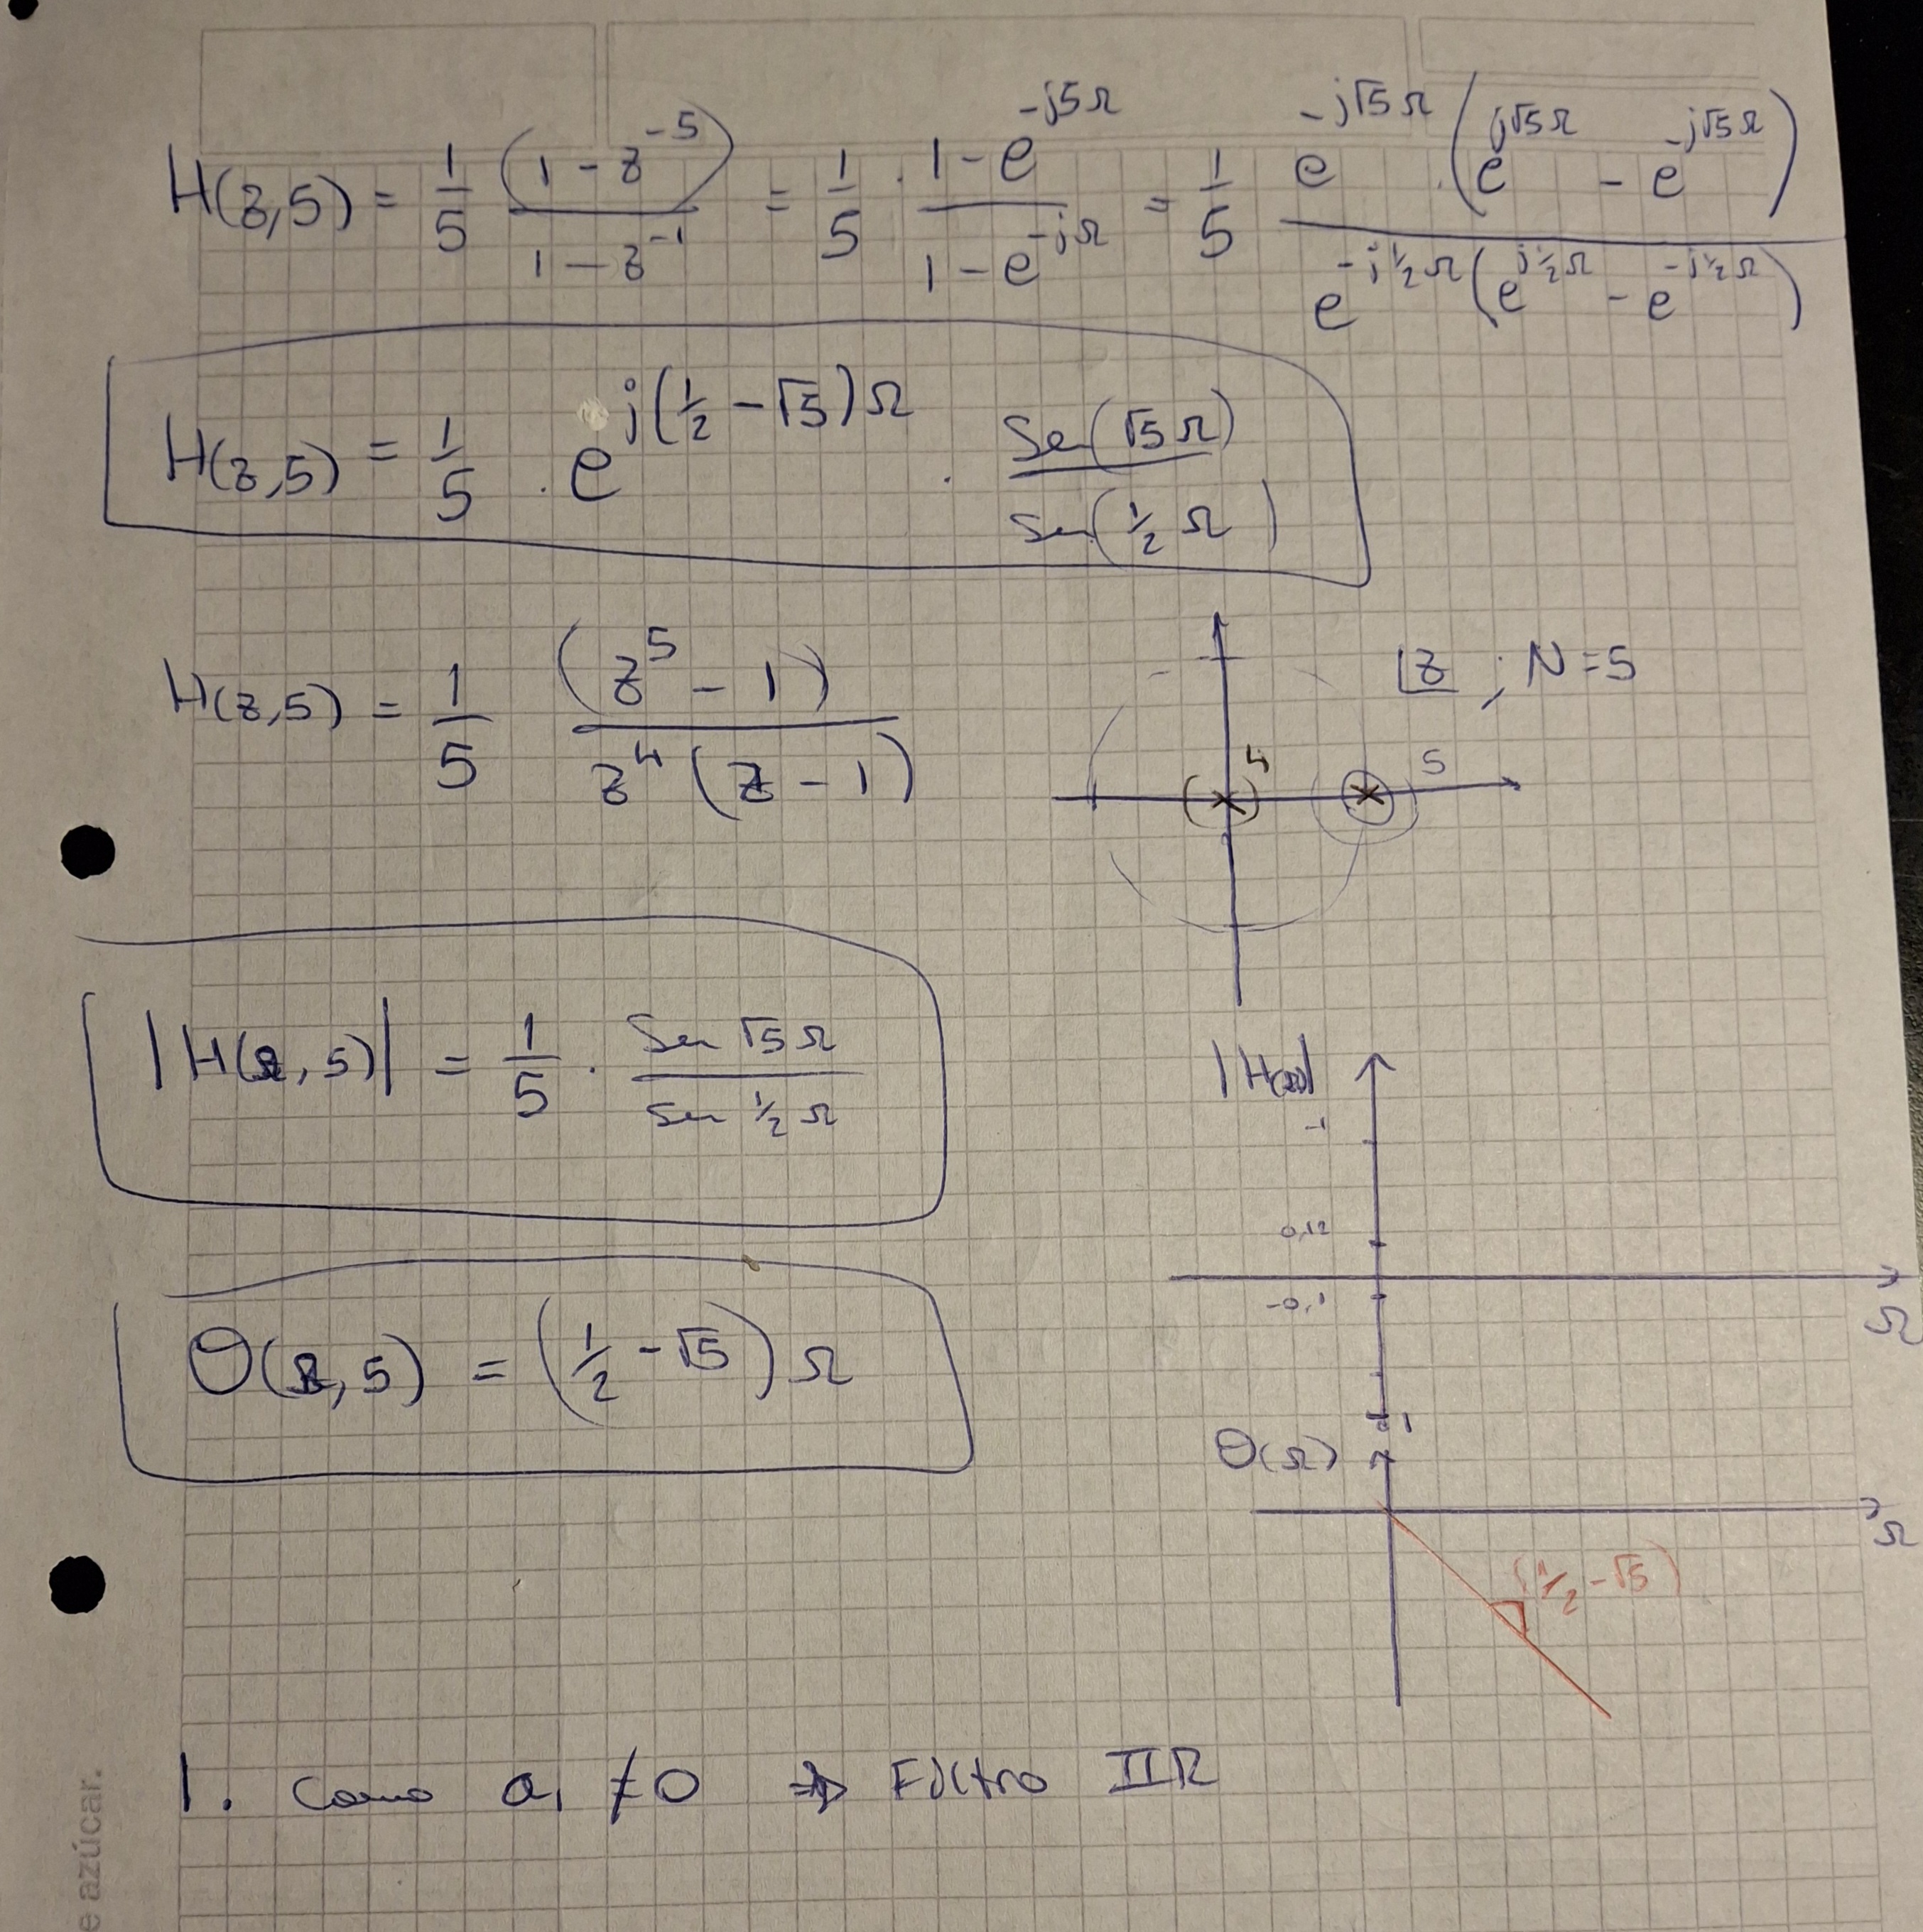 H(z,5) = 1/5 (1 - z^-5)/(1 - z^-1) = 1/5 · (1 - e^-j5Ω)/(1 - e^-jΩ) = 1/5 e^-j√5Ω · (e^j√5Ω - e^-j√5Ω) / e^-j½Ω (e^j½Ω - e^-j½Ω)
H(z,5) = 1/5 · e^j(½ - √5)Ω · Sen(√5 Ω)/Sen(½ Ω)
H(z,5) = 1/5 (z^5 - 1)/(z^4 (z - 1))
z ; N = 5
4
5
|H(Ω,5)| = 1/5 · Sen √5 Ω / Sen ½ Ω
|H(Ω)|
-1
0,12
-0,1
Ω
-1
θ(Ω,5) = (½ - √5) Ω
θ(Ω)
Ω
(½ - √5)
1. Como a₁ ≠ 0 ⇒ Filtro IIR
e azúcar.